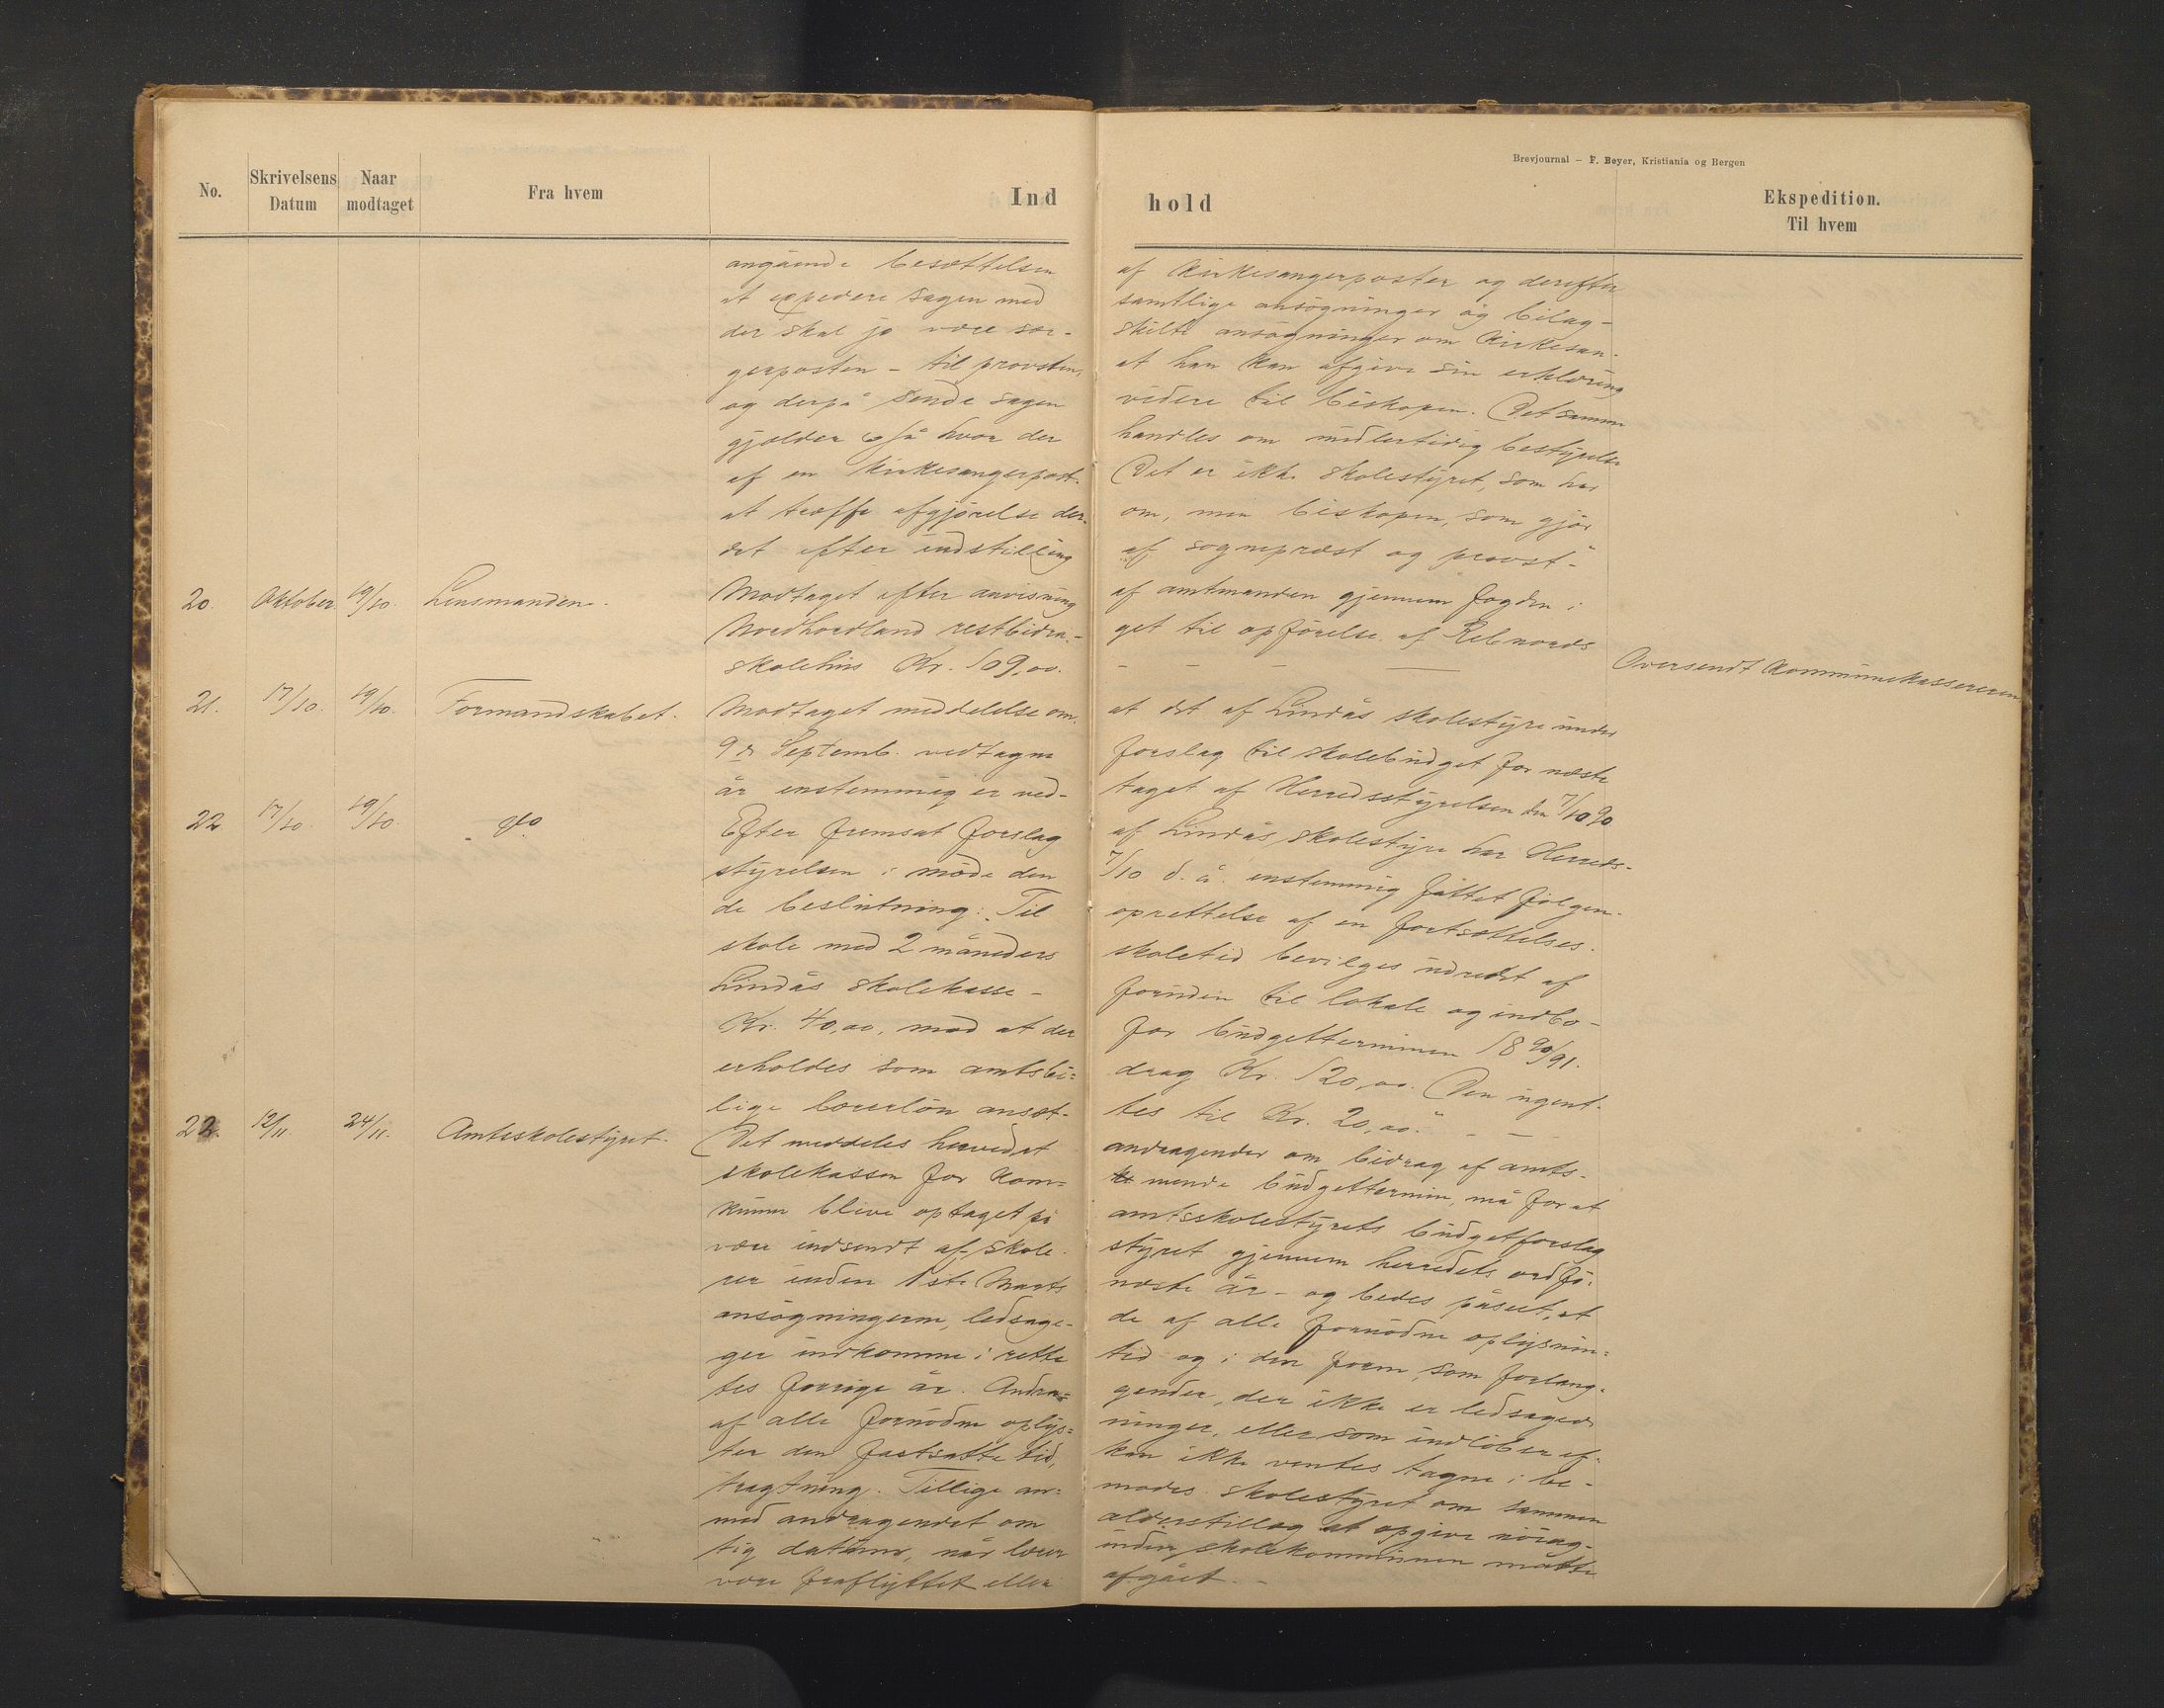 Brevjournal — F. Beyer, Kristiania og Bergen
No. Skrivelsens Datum Naar modtaget Fra hvem Ind hold Ekspedition. Til hvem
angående besættelsen af Kirkesangerposter og derefter
at expedere sagen med samtlige ansøgninger og bilag –
der skal jo være sær- skilte ansøgninger om Kirkesan-
gerposten – til provsten, at han kan afgive sin erklæring
og derpå sende sagen videre til biskopen. Det samme
gjælder også hvor der handles om midlertidig bestyrelse
af en kirkesangerpost. Det er ikke skolestyret, som har
at træffe afgjørelse der- om, men biskopen, som gjør
det efter indstilling af sogneprest og provst“
20. Oktober 19/10. Lensmanden. Modtaget efter anvisning af amtmanden gjennem fogden i
Nordhordland restbidra- get til opførelse af Rebnords
skolehus Kr. 109,00. – – – Oversendt Kommunekassereren
21. 17/10. 19/10. Formandskabet. Modtaget meddelelse om. at det af Lindås skolestyre under
9de Septemb. vedtagne forslag til skolebudget for næste
år enstemmig er ved- taget af Herredsstyrelsen den 7/10 90
22 17/10. 19/10. do Efter fremsat forslag af Lindås skolestyre har Herreds-
styrelsen i møde den 7/10 d. å. enstemmig fattet følgen-
de beslutning: „Til oprettelse af en fortsættelses-
skole med 2 måneders skoletid bevilges udredet af
Lindås skolekasse – foruden til lokale og indbo –
Kr. 40,00, mod at der for budgetterminen 18 90/91.
erholdes som amtsbi= drag Kr. 120,00. Den ugent-
lige lærerløn ansæt- tes til Kr. 20,00.“ – –
22. 12/11. 24/11. Amtsskolestyret. Det meddeles herved at andragender om bidrag af amts-
skolekassen for kom= mende budgettermin, må for at
kunne blive optaget på amtsskolestyrets budgetforslag
være indsendt af skole- styret gjennem herredets ordfø-
rer inden 1ste Marts næste år – og bedes påseet, at
ansøgningerne, ledsage- de af alle fornødne oplysnin=
ger indkomme i rette tid og i den form, som forlang-
tes forrige år. Andra= gender, der ikke er ledsaged
af alle fornødne oplys= ninger, eller som indløber ef-
ter den fastsatte tid, kan ikke ventes tagne i be-
tragtning. Tillige an= modes skolestyret om sammen
med andragendet om alderstillæg at opgive nøiag-
tig datum, når lærer inden skolekommunen måtte
være fraflyttet eller afgået. –